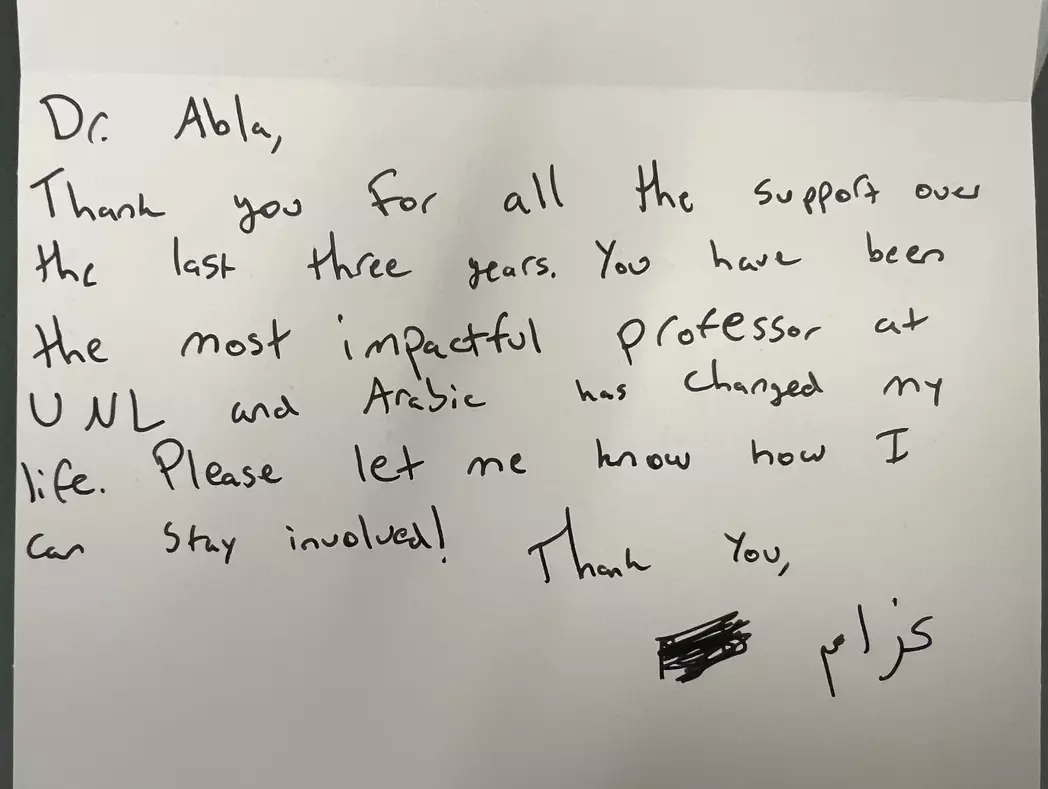 Dr. Abla,
Thank you for all the support over
the last three years. You have been
the most impactful professor at
UNL and Arabic has changed my
life. Please let me know how I
can stay involved! Thank You,
عزام